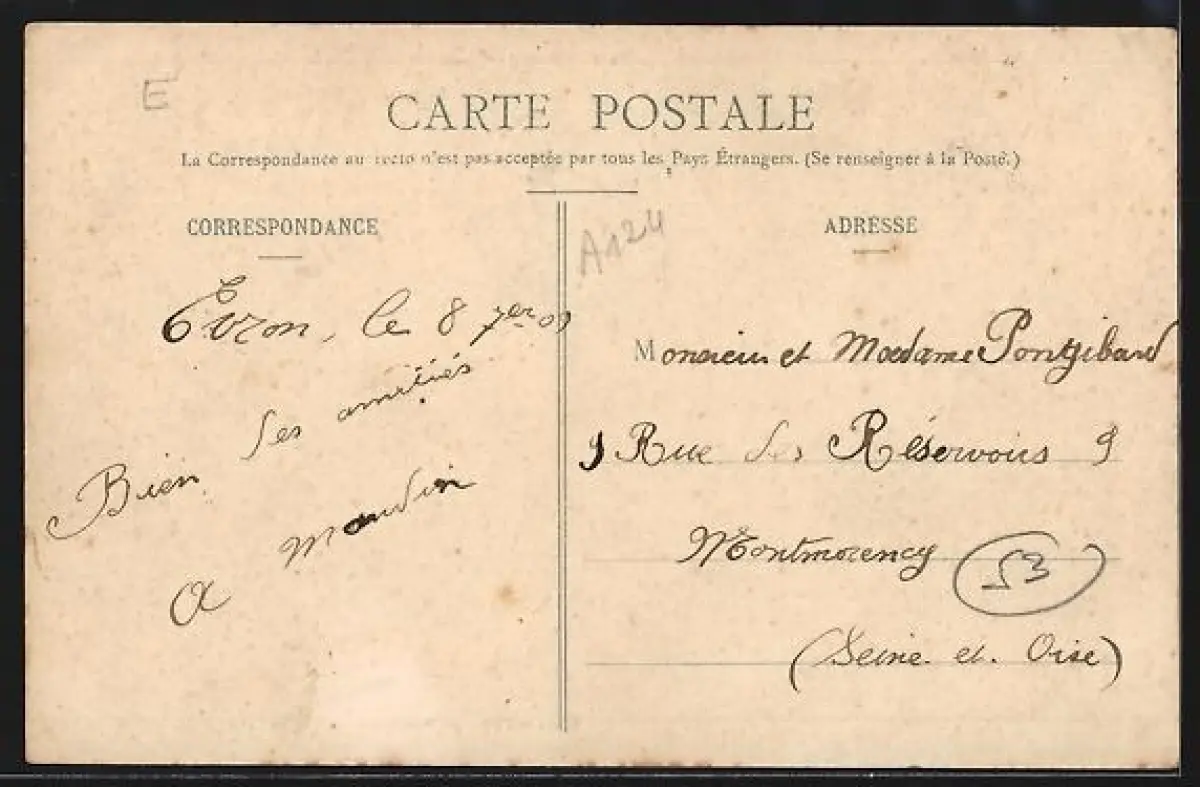 E
CARTE POSTALE
La Correspondance au recto n'est pas acceptée par tous les Pays Étrangers. (Se renseigner à la Poste.)
CORRESPONDANCE
Evron, le 8 7er
Bien des amitiés
A Maudin
A124
ADRESSE
Monsieur et Madame Pontgibaud
9 Rue des Réservoirs 9
Montmorency
53
(Seine et Oise)